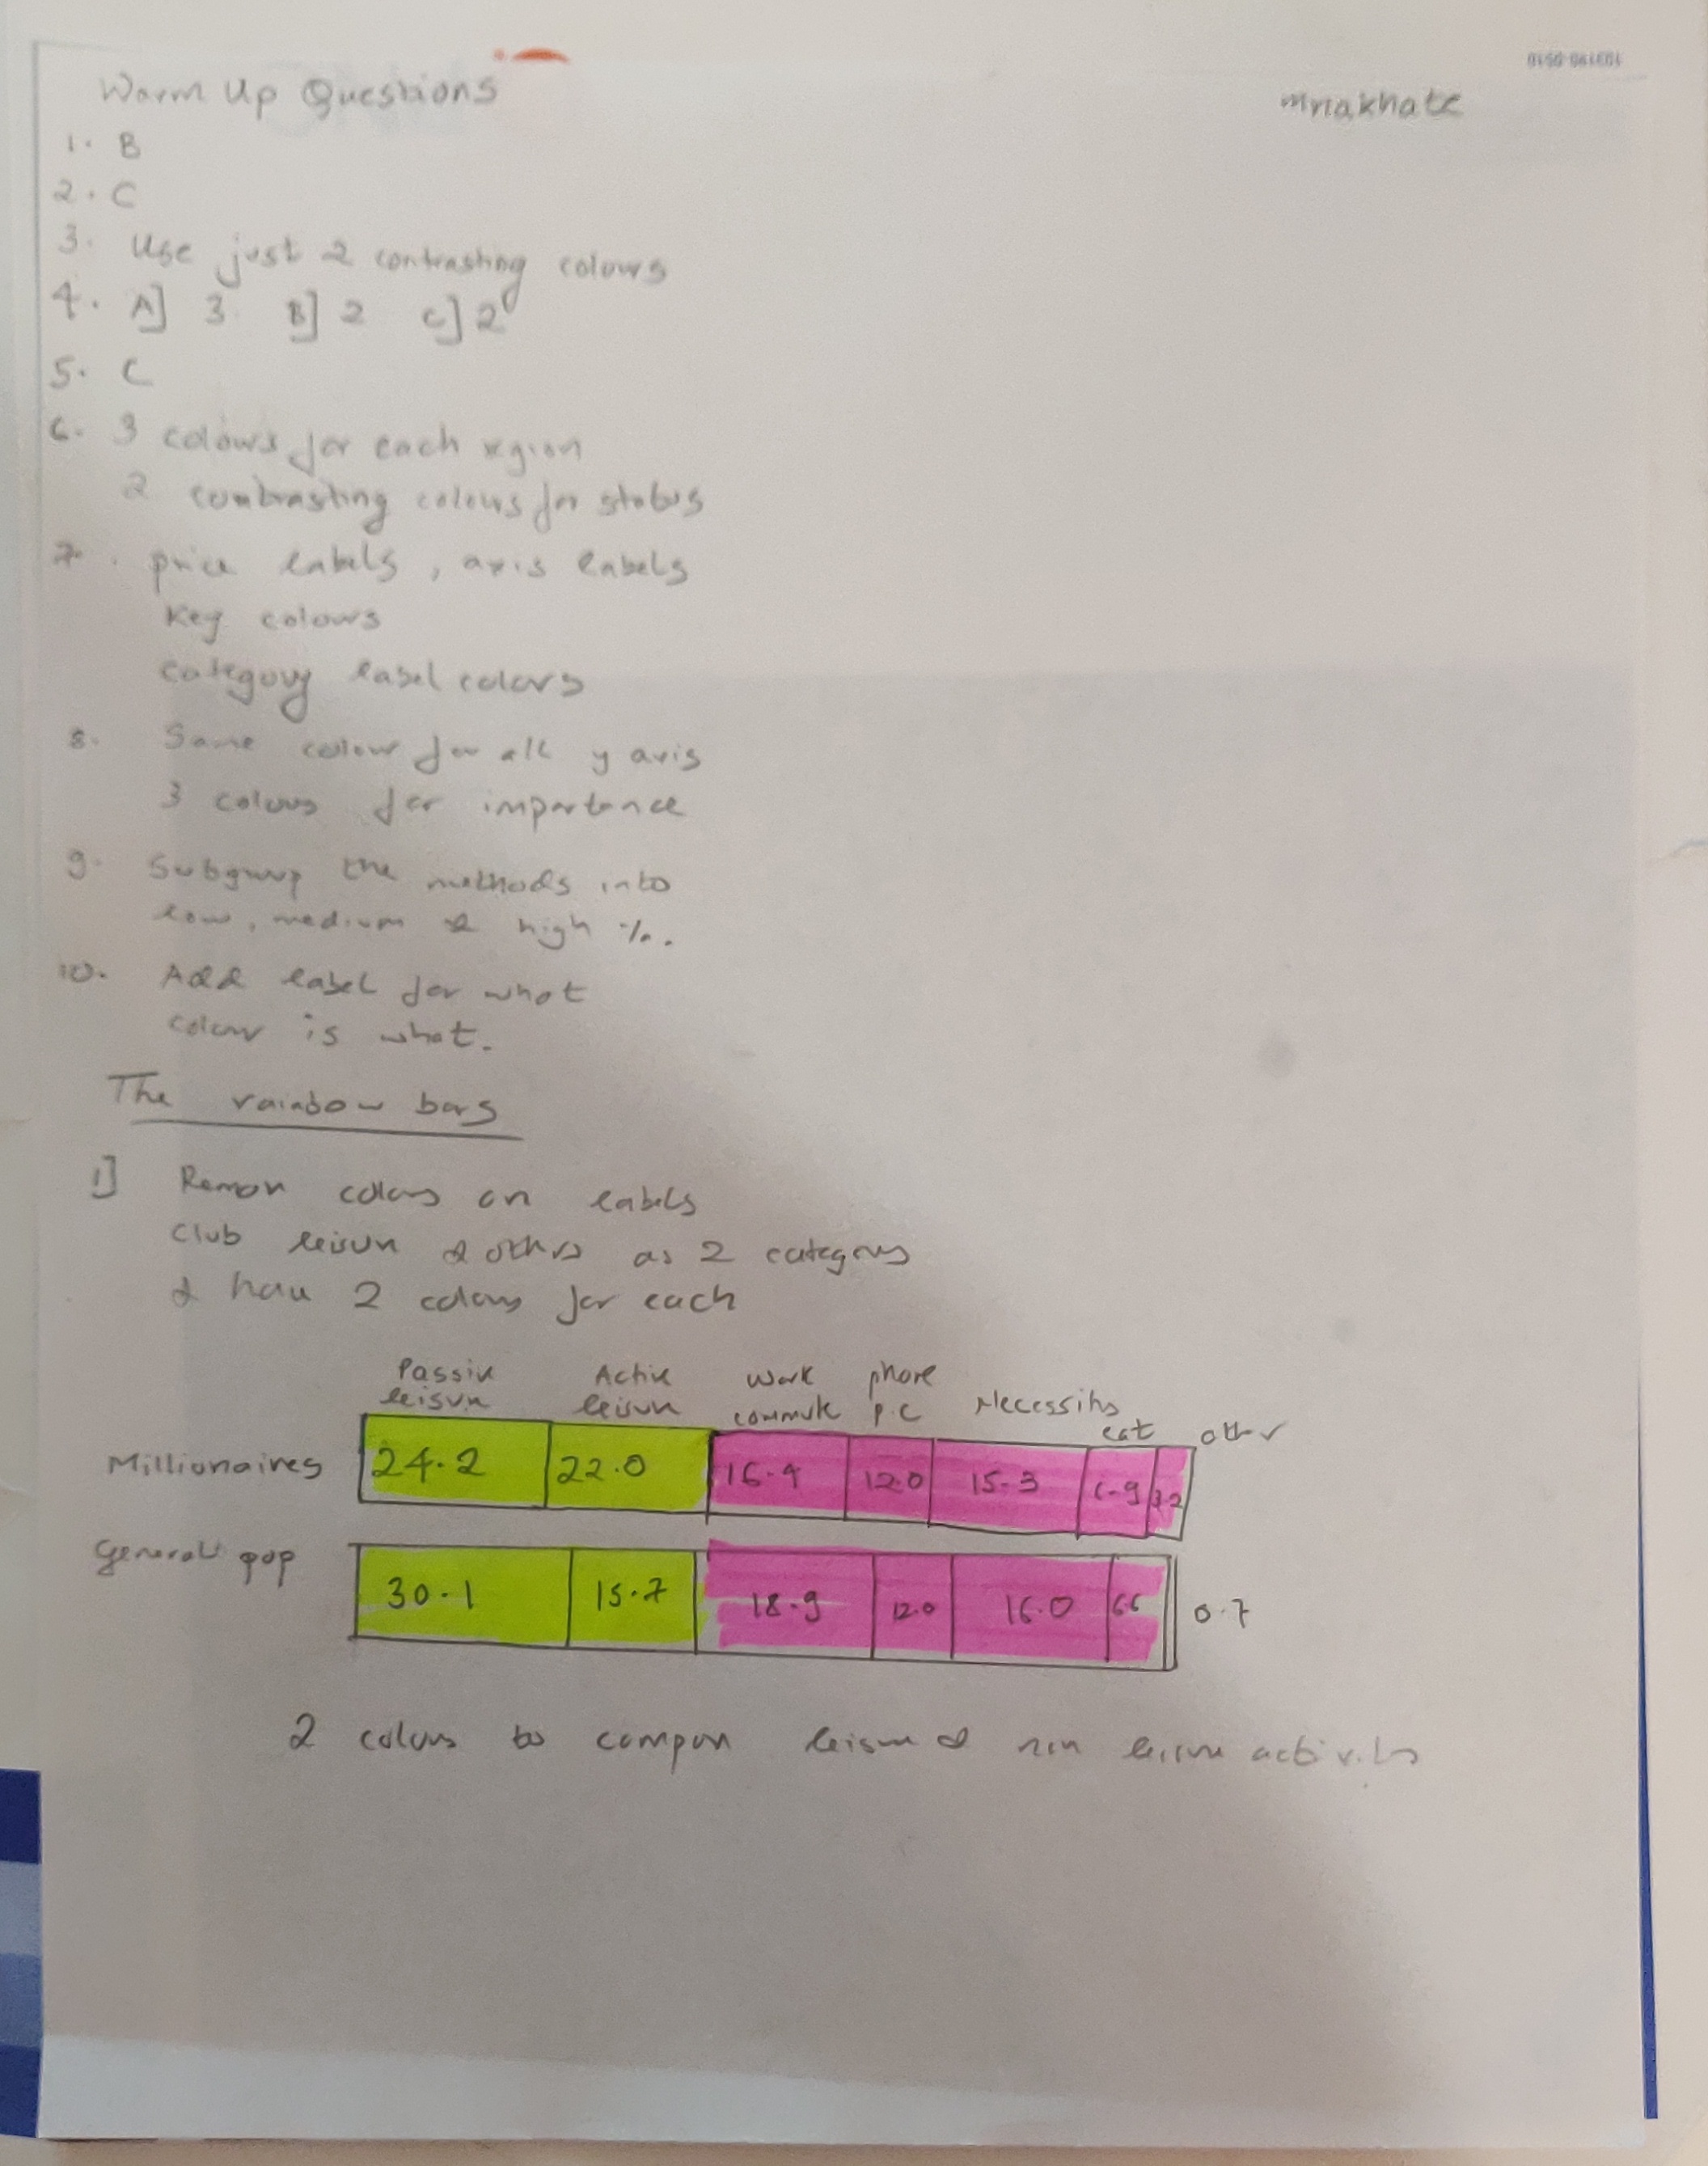 Warm Up Questions
mriakhate
1. B
2. C
3. Use just 2 contrasting colours
4. A] 3 B] 2 C] 2
5. C
6. 3 colours for each region
2 contrasting colours for status
7. price labels, axis labels
Key colours
category label colors
8. Same colour for all y axis
3 colours for importance
9. Subgroup the methods into
low, medium & high %.
10. Add label for what
colour is what.
The rainbow bars
1] Remove colors on labels
Club leisure & others as 2 category
& have 2 colors for each
Passive leisure Active leisure Work commute phone P.C Necessities eat other
Millionaires 24.2 22.0 16.4 12.0 15.3 6.9 3.2
General pop 30.1 15.7 18.9 12.0 16.0 6.6 0.7
2 colors to compare leisure & non leisure activities